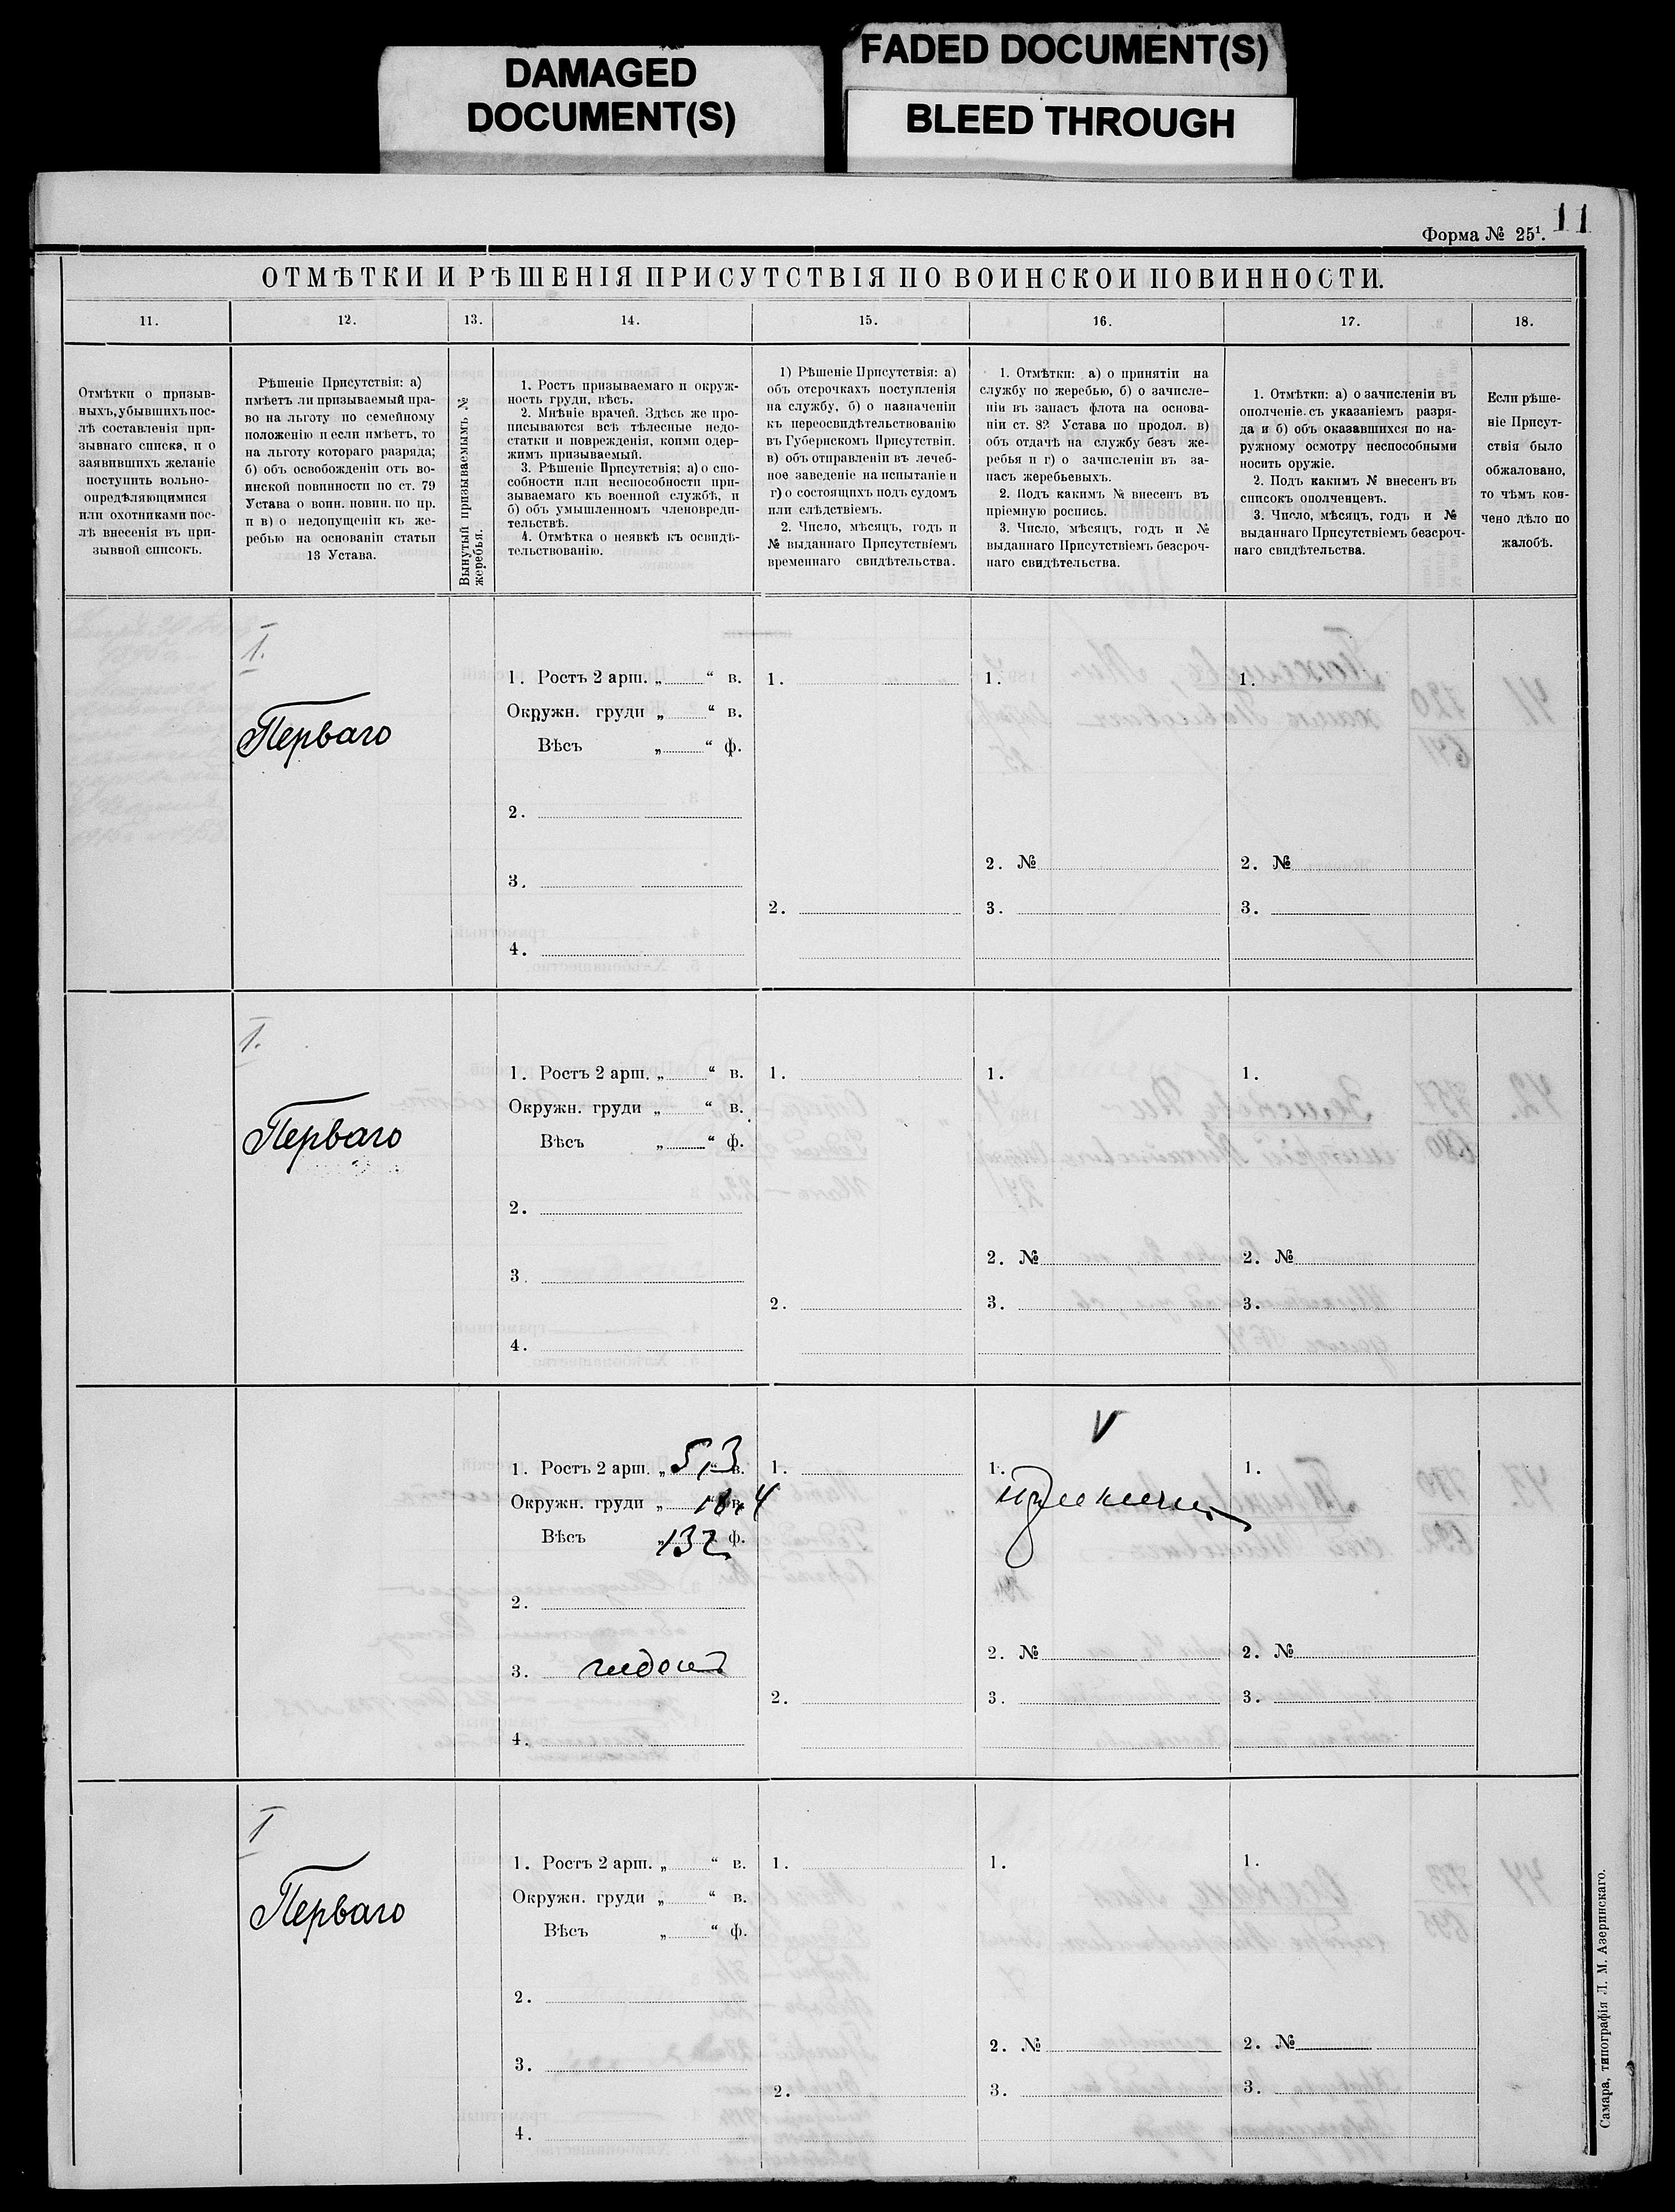 DAMAGED
DOCUMENT(S)
FADED DOCUMENT(S)
BLEED THROUGH
11
Форма № 25¹.
ОТМѢТКИ И РѢШЕНІЯ ПРИСУТСТВІЯ ПО ВОИНСКОИ ПОВИННОСТИ.
11.
12.
13.
14.
15.
16.
17.
18.
Отмѣтки о призыв-
ныхъ, убывшихъ пос-
лѣ составленія при-
зывнаго списка, и о
заявившихъ желаніе
поступить вольно-
опредѣляющимися
или охотниками пос-
лѣ внесенія въ при-
зывной списокъ.
Рѣшеніе Присутствія: а)
имѣетъ ли призываемый пра-
во на льготу по семейному
положенію и если имѣетъ, то
на льготу котораго разряда;
б) объ освобожденіи отъ во-
инской повинности по ст. 79
Устава о воин. повин. по пр.
и в) о недопущеніи къ же-
ребью на основаніи статьи
13 Устава.
Вынутый призываемымъ №
жеребья.
1. Ростъ призываемаго и окруж-
ность груди, вѣсъ.
2. Мнѣніе врачей. Здѣсь же про-
писываются всѣ тѣлесные недо-
статки и поврежденія, коими одер-
жимъ призываемый.
3. Рѣшеніе Присутствія; а) о спо-
собности или неспособности при-
зываемаго къ военной службѣ, и
б) объ умышленномъ членовреди-
тельствѣ.
4. Отмѣтка о неявкѣ къ освидѣ-
тельствованію.
1) Рѣшеніе Присутствія: а)
объ отсрочкахъ поступленія
на службу, б) о назначеніи
къ переосвидѣтельствованію
въ Губернскомъ Присутствіи.
в) объ отправленіи въ лечеб-
ное заведеніе на испытаніе и
г) о состоящихъ подъ судомъ
или слѣдствіемъ.
2. Число, мѣсяцъ, годъ и
№ выданнаго Присутствіемъ
временнаго свидѣтельства.
1. Отмѣтки: а) о принятіи на
службу по жеребью, б) о зачисле-
ніи въ запасъ флота на основа-
ніи ст. 82 Устава по продол. в)
объ отдачѣ на службу безъ же-
ребья и г) о зачисленіи въ за-
пасъ жеребьевыхъ.
2. Подъ какимъ № внесенъ въ
пріемную роспись.
3. Число, мѣсяцъ, годъ и №
выданнаго Присутствіемъ безсроч-
наго свидѣтельства.
1. Отмѣтки: а) о зачисленіи въ
ополченіе съ указаніемъ разря-
да и б) объ оказавшихся по на-
ружному осмотру неспособными
носить оружіе.
2. Подъ какимъ № внесенъ въ
списокъ ополченцевъ.
3. Число, мѣсяцъ, годъ и №
выданнаго Присутствіемъ безсроч-
наго свидѣтельства.
Если рѣше-
ніе Присут-
ствія было
обжаловано,
то чѣмъ кон-
чено дѣло по
жалобѣ.
I.
Перваго
1. Ростъ 2 арш. „ “ в.
Окружн. груди „ “ в.
Вѣсъ „ “ ф.
2.
3.
4.
1.
2.
1.
2. №
3.
1.
2. №
3.
I.
Перваго
1. Ростъ 2 арш. „ “ в.
Окружн. груди „ “ в.
Вѣсъ „ “ ф.
2.
3.
4.
1.
2.
1.
2. №
3.
1.
2. №
3.
1. Ростъ 2 арш. „ 5,3 “ в.
Окружн. груди „ 18,4 “ в.
Вѣсъ „ 132 ф.
2.
3. годенъ
4.
1.
2.
V
1.
2. №
3.
1.
2. №
3.
I
Перваго
1. Ростъ 2 арш. „ “ в.
Окружн. груди „ “ в.
Вѣсъ „ “ ф.
2.
3.
4.
1.
2.
1.
2. №
3.
1.
2. №
3.
Самара, типографія Л. М. Азеринскаго.